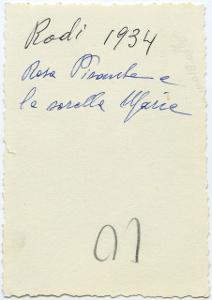 Rodi 1934
Rosa Pisante e
la sorella Marie